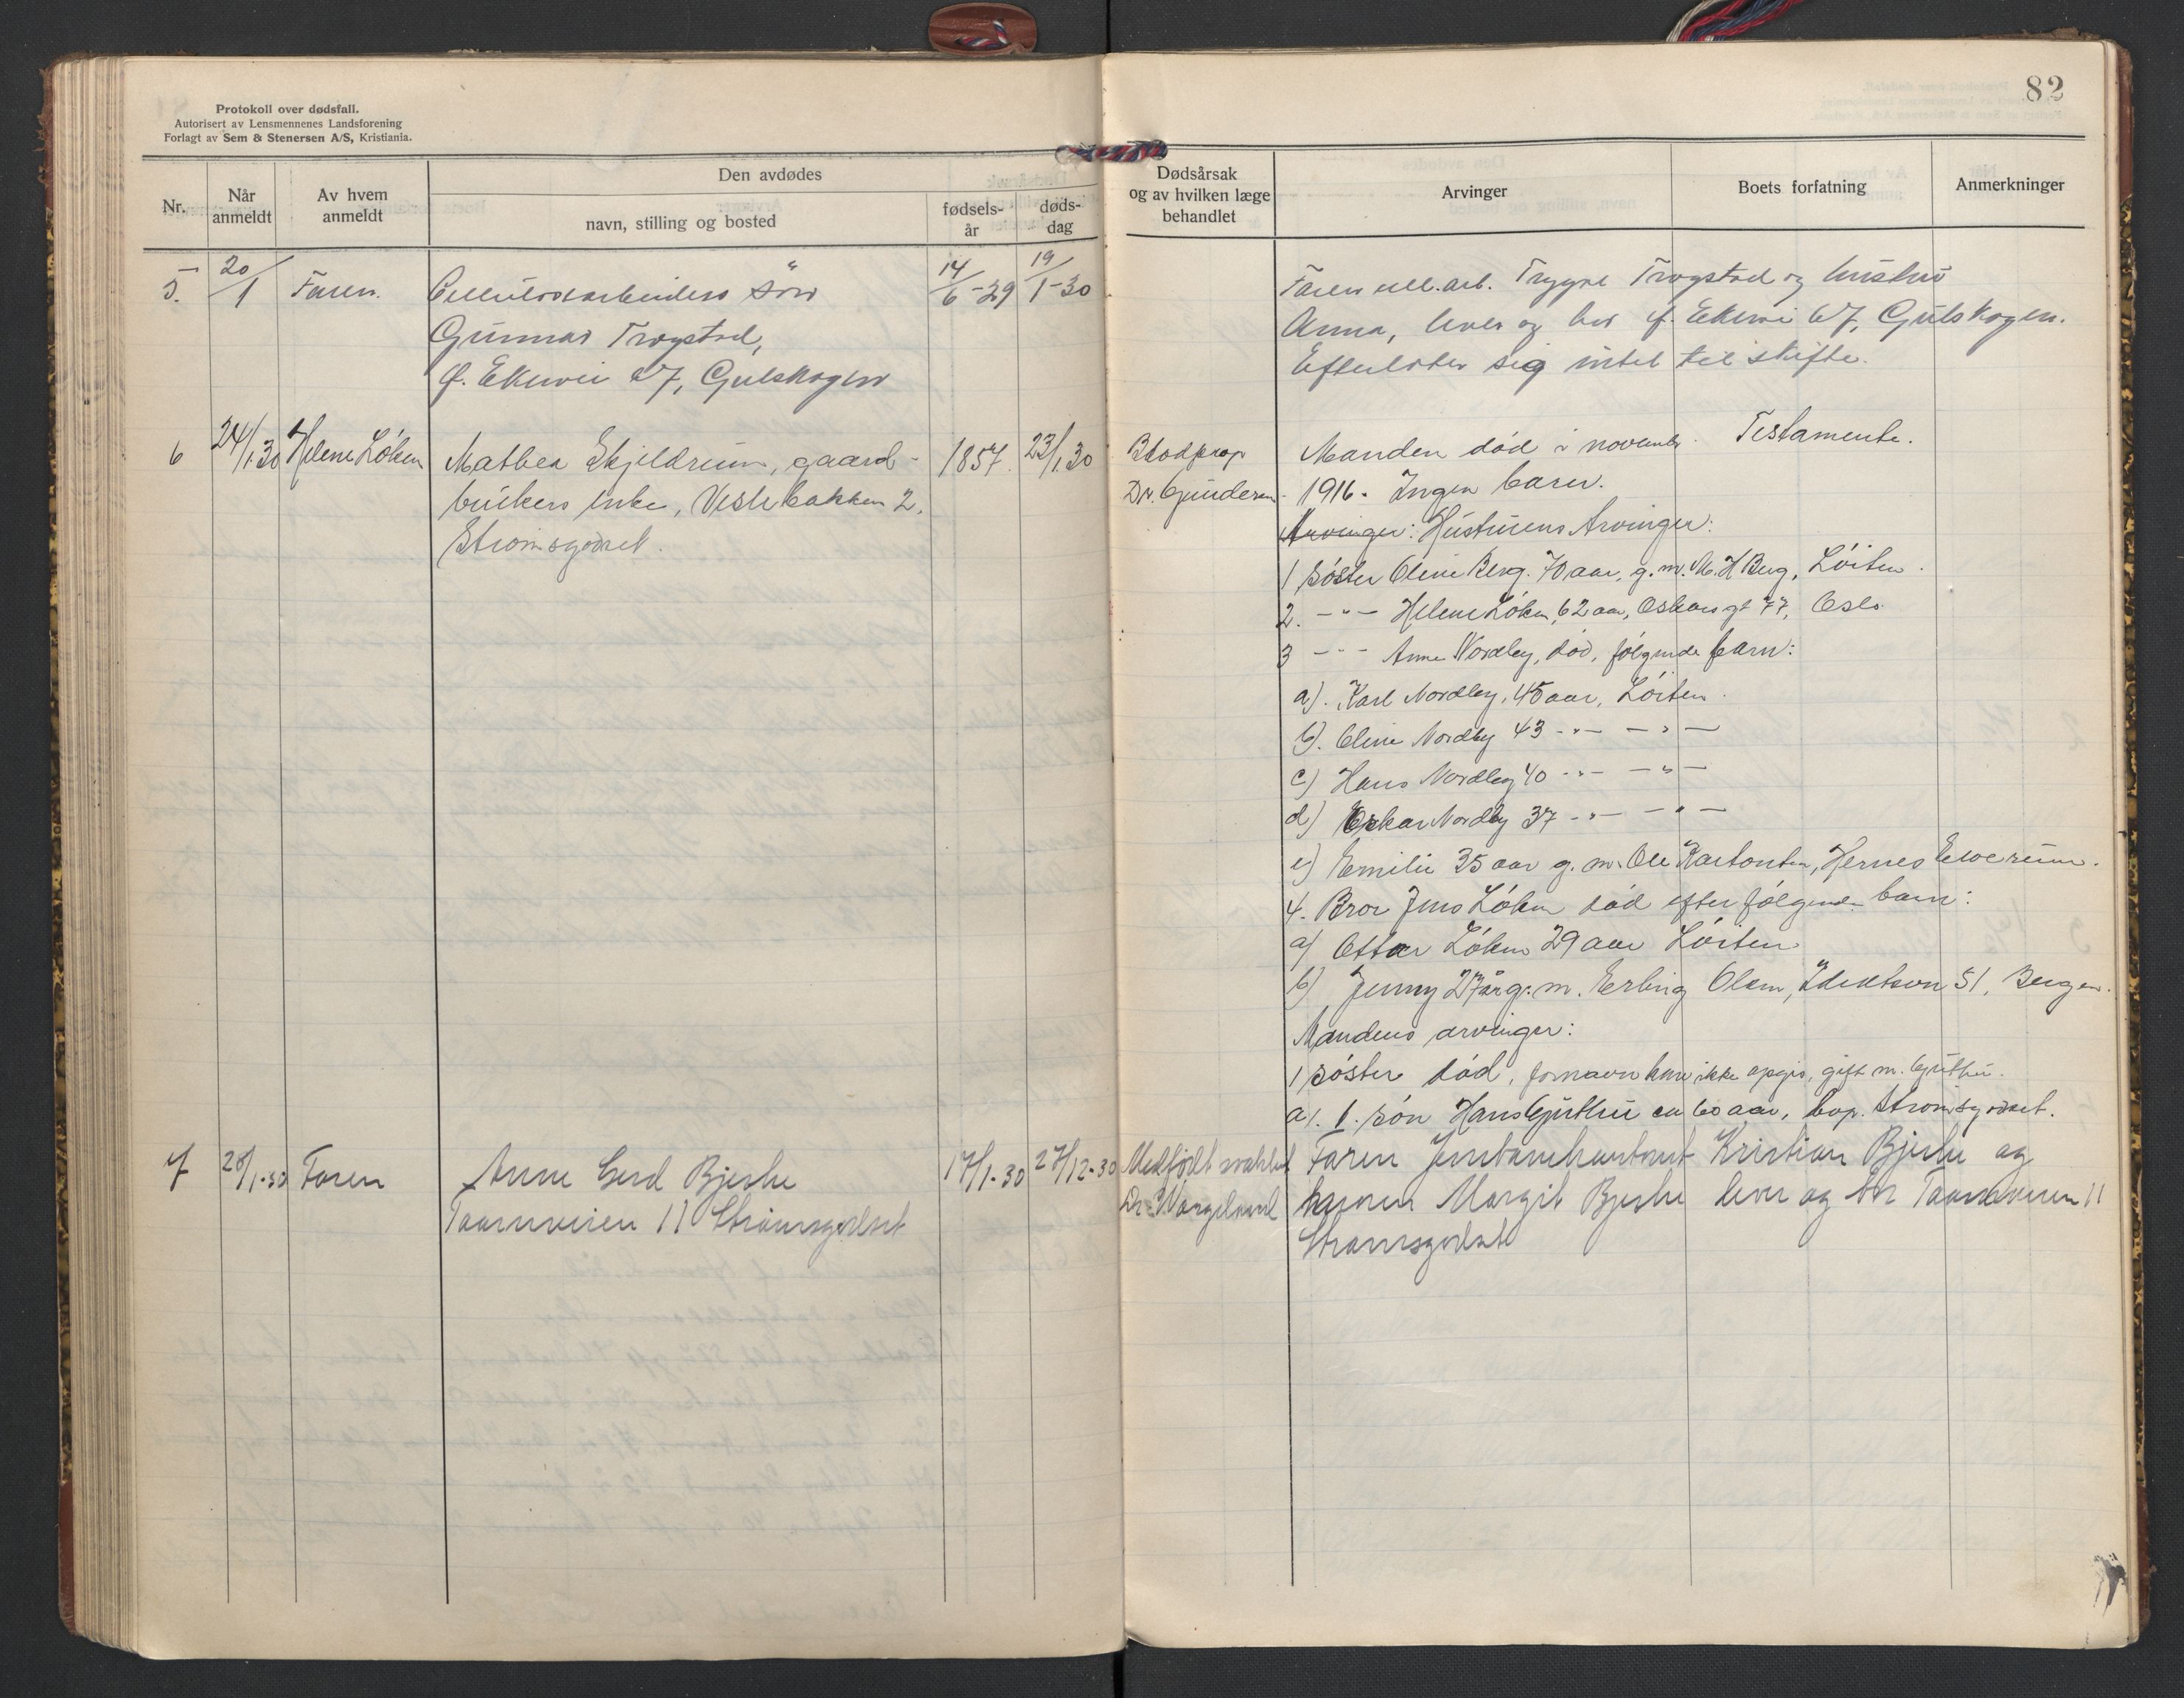 Protokoll over dødsfall.
Autorisert av Lensmennenes Landsforening
Forlagt av Sem & Stenersen A/S, Kristiania.
82
Nr.
Når anmeldt
Av hvem anmeldt
Den avdødes
navn, stilling og bosted
fødsels-år
døds-dag
Dødsårsak og av hvilken læge behandlet
Arvinger
Boets forfatning
Anmerkninger
5. 20/1 Faren. Cellulosearbeiders søn 14/6-29 19/1-30
Gunnar Trøgstad,
f. Ekevei 67, Gulskogen
Faren cell.arb. Trygve Trøgstad og hustru
Anna, lever og bor f. Ekevei 67, Gulskogen.
Efterlater sig intet til skifte.
6 24/1 30 Helene Løken Mathea Skjeldrum, gaard- 1857. 23/1 30
brukers enke, Vestrebakken 2,
Strømsgodset.
Blodprop
Dr. Gundersen
Manden død i novembr. Testamente.
1916. Ingen barn.
Arvinger: Hustruens Arvinger:
1 søster Oline Berg. 70 aar, g.m. M. H Berg, Løiten.
2. -"- Helene Løken, 62 aar, Oskars gt 77, Oslo
3 -"- Anne Nordby, død, følgende barn:
a). Karl Nordby, 45 aar, Løiten.
b). Oline Nordby 43 -"- -"-
c) Hans Nordby 40 -"- -"-
d) Oskar Nordby 37 -"- -"-
e) Emilie 35 aar g.m. Ole, Hernes Elverum.
4. Bror Jens Løken død efter følgende barn:
a) Ottar Løken 29 aar Løiten
b) Jenny 27 år g.m. Erling Olsen, 51, Bergen.
Mandens arvinger:
1 søster død, fornavn kan ikke opgis, gift m. Guthu.
a). 1. søn Hans Guthu ca 60 aar, bop. Strømsgodset.
7 28/1-30 Faren Anne Gerd Bjerke 17/1-30 27/12-30
Taarnveien 11 Strømsgodset
Medfødt svakhet
Dr.
Faren Kristian Bjerke og
konen Margit Bjerke lever og bor Taarnveien 11
Strømsgodset